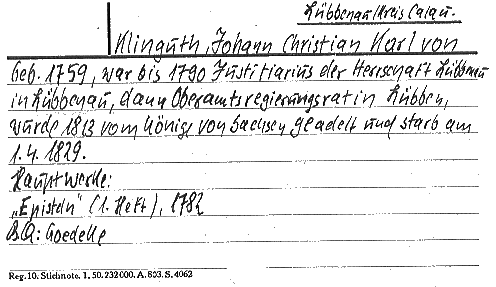 Lübbenau/Kreis Calau.
Klinguth, Johann Christian Karl von
geb. 1759, war bis 1790 Justitiarius der Herrschaft Lübbenau
in Lübbenau, dann Oberamtsregierungsrat in Lübben,
wurde 1813 vom Könige von Sachsen geadelt und starb am
1.4.1829.
Hauptwerke:
„Episteln" (1. Heft), 1782
B.Q.: Goedeke
Reg. 10. Stichnote. 1. 50. 232000. A. 803. S. 4062